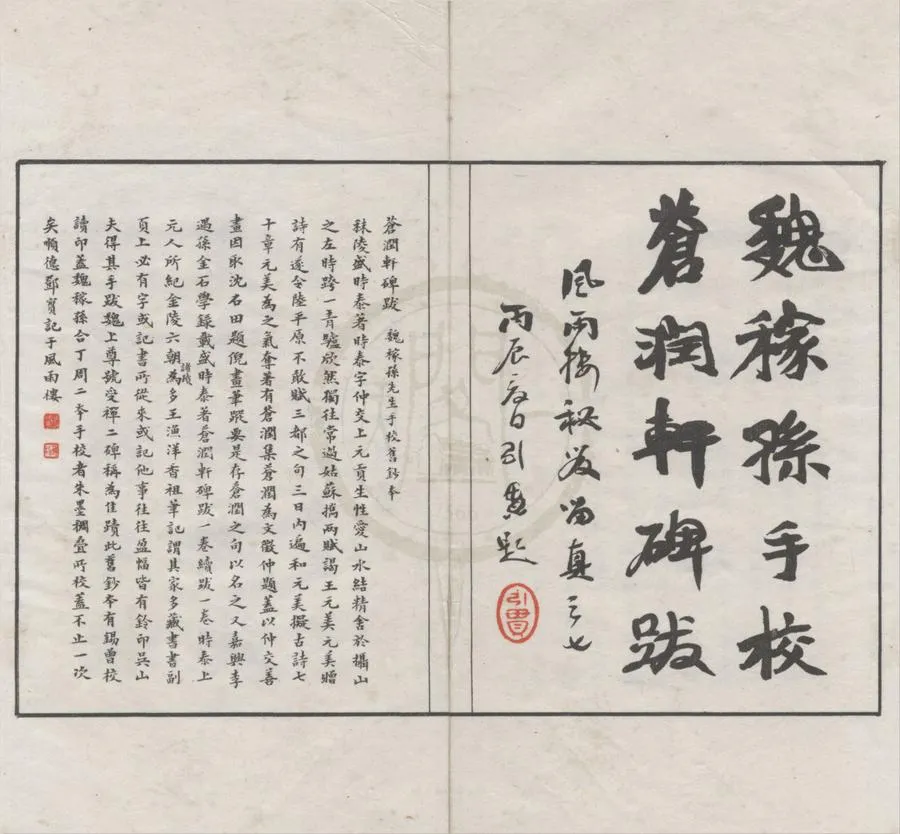 魏稼孫手校
蒼潤軒碑跋
風雨樓秘笈留真之七
丙辰 引 題
蒼潤軒碑跋　魏稼孫先生手校舊鈔本
秣陵盛時泰著時泰字仲交上元貢生性愛山水結精舍於攝山
之左時跨一青驢欣然獨往常過姑蘇擕兩賦謁王元美元美贈
詩有遂令陸平原不敢賦三都之句三日內遍和元美擬古詩七
十章元美為之氣奪著有蒼潤集蒼潤為文徵仲題蓋以仲交善
畫因取沈石田題倪畫筆蹤要是存蒼潤之句以名之又嘉興李
遇孫金石學錄載盛時泰著蒼潤軒碑跋一卷續跋一卷時泰上
元人所紀金陵六朝諸蹟為多王漁洋香祖筆記謂其家多藏書書副
頁上必有字或記書所從來或記他事往往盈幅皆有鈐印吳山
夫得其手跋魏上尊號受禪二碑稱為佳蹟此舊鈔本有錫曾校
讀印蓋魏稼孫合丁周二本手校者朱墨稠疊所校蓋不止一次
矣順德鄧實記于風雨樓